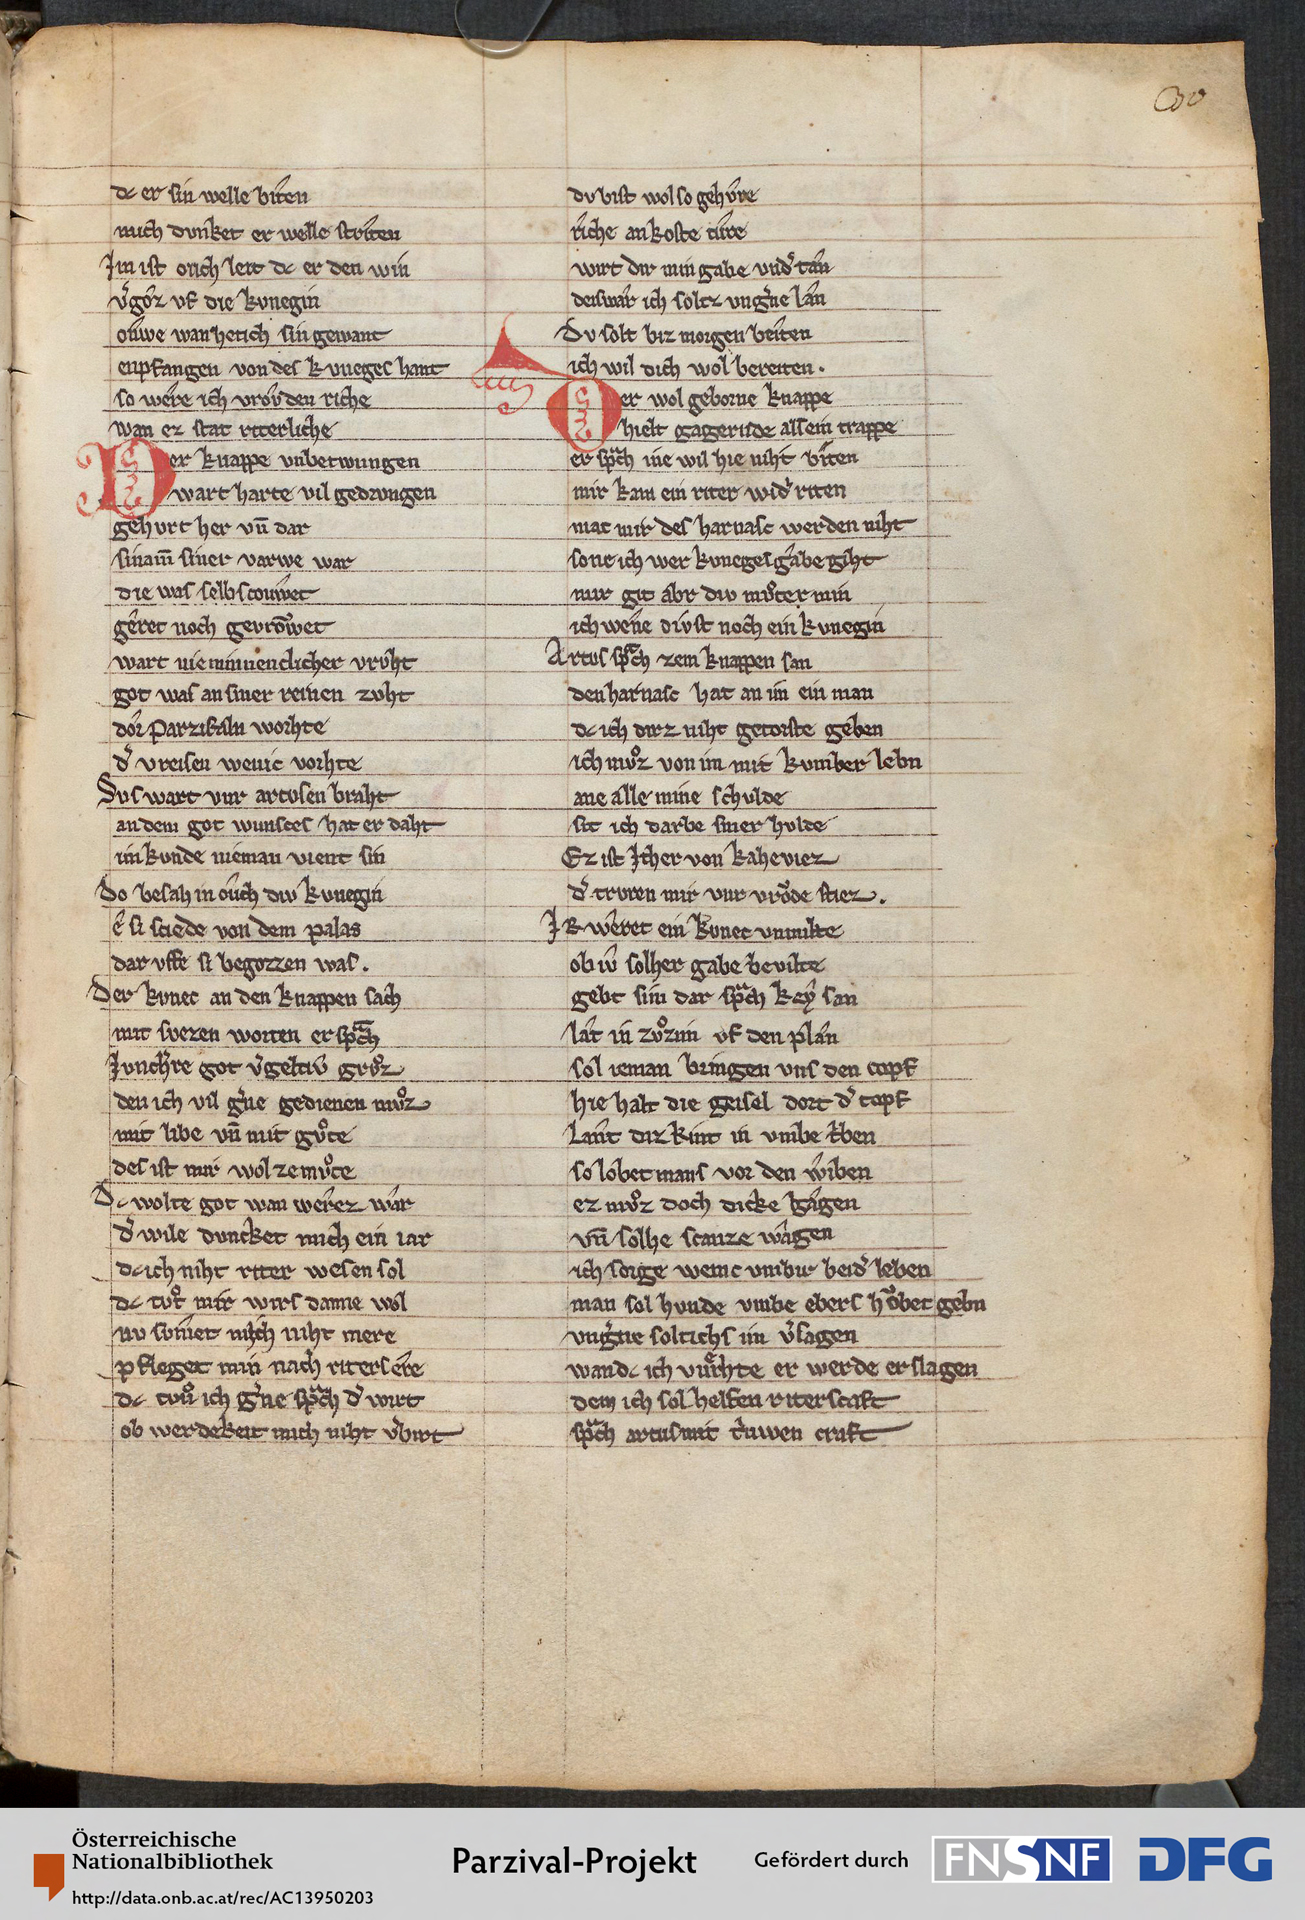 30
dc er sin welle biten
mich dvnket er welle striten
Im ist ouch leit dc er den win
v̓goz vf die kvnegin
ouwe wan hetich sin gewant
enpfangen von des kvneges hant
so were ich vrovden riche
wan ez stat riterliche
Der knappe vnbetwungen
wart harte vil gedrvngen
gehvrt her vn̄ dar
si nam̄ siner varwe war
die was selbscouwet
geret noch gevrowet
wart nie minnenclicher vrvht
got was an siner reinen zvht
dor Parzifaln worhte
d̓ vreisen wenic vorhte
Svs wart vur artvsen braht
an dem got wunsces hat er daht
im kvnde nieman vient sin
Do besah in ouch div kvnegin
e si sciede von dem palas
dar vffe si begozzen was.
Der kvnec an den knappen sach
mit svezen worten er sprach
Jvnch̓re got v̓gelt iv gruͦz
den ich vil g̓ne gedienen muͦz
mit libe vn̄ mit guͦte
des ist mir wol ze muͦte
Dc wolte got wan werez war
d̓ wile dvncket mich ein iar
dc ich niht riter wesen sol
dc tuͦt mir wirs danne wol
nv svmet mich niht mere
pfleget min nach riters ere
dc tuͦn ich g̓ne sprach d̓ wirt
ob werdekeit mich niht v̓birt
dv bist wol so gehvre
riche an koste tivre
wirt dir min gabe vnd̓tan
deiswar ich soltz vng̓ne lan
Dv solt biz morgen beiten
ich wil dich wol bereiten.
Der wol geborne knappe
hielt gagernde alsein trappe
er sprach ine wil hie niht biten
mir kam ein riter wid̓riten
mac mir des harnasc werden niht
sone ich wer kvneges gabe giht
mir git abr div muͦter min
ich wene divst noch ein kvnegin
Artvs sprach zem knappen san
den harnasc hat an im ein man
dc ich dirz niht getorste geben
ich muͦz von im mit kvmber lebn
ane alle mine schvlde
sit ich darbe siner hvlde
Ez ist Jther von kaheviez
d̓ trvren mir vur vroͮde stiez.
IR weret ein kvnec vnmilte
ob iv solher gabe bevilte
gebt sim dar sprach key san
lat in zuͦzim vf den plan
sol ieman bringen vns den copf
hie halt die geisel dort d̓ topf
Lant diz kint in vmbe t̓ben
so lobet mans vor den wiben
ez muͦz doch dicke bagen
vn̄ solhe scanze wagen
ich sorge wenic vmbir beid̓ leben
man sol hvnde vmbe ebers hoͮbet gebn
vng̓ne soltichs im v̓sagen
wandc ich vurhte er werde erslagen
dem ich sol helfen riterscaft
sprach artus mit triuwen craft
Österreichische
Nationalbibliothek
http://data.onb.ac.at/rec/AC13950203
Parzival-Projekt
Gefördert durch
FNSNF
DFG